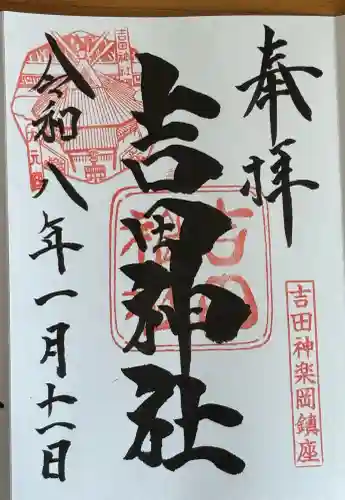 奉拝
吉田神楽岡鎮座
吉田神社
吉田神社
令和八年一月十一日